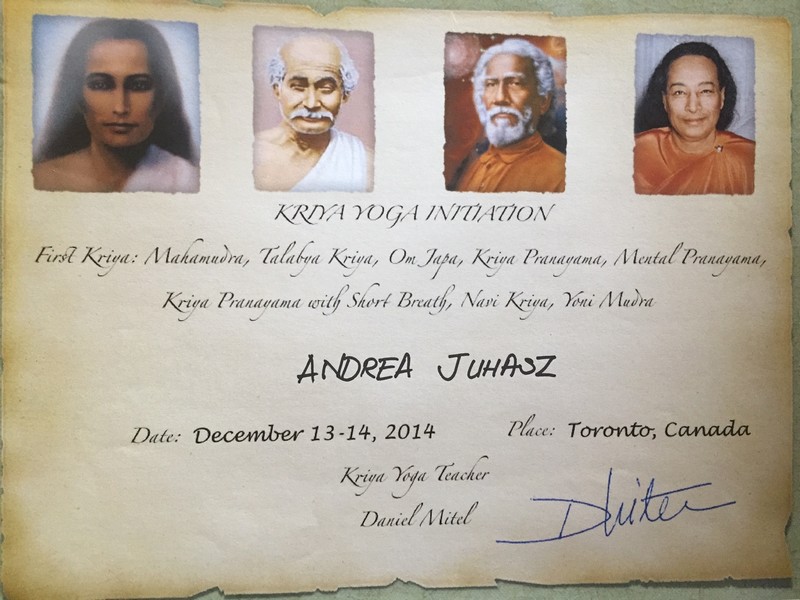 KRIYA YOGA INITIATION
First Kriya: Mahamudra, Talabya Kriya, Om Japa, Kriya Pranayama, Mental Pranayama,
Kriya Pranayama with Short Breath, Navi Kriya, Yoni Mudra
ANDREA JUHASZ
Date: December 13-14, 2014 Place: Toronto, Canada
Kriya Yoga Teacher
Daniel Mitel